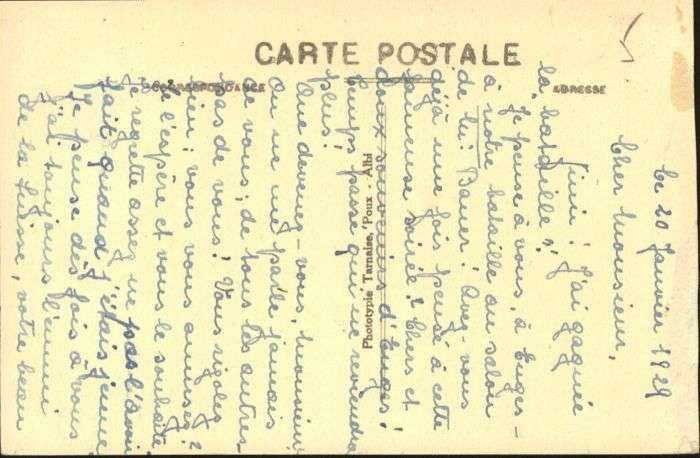 CARTE POSTALE
CORRESPONDANCE
ADRESSE
Phototypie Tarnaise, Poux - Albi
Le 20 Janvier 1929
Cher Monsieur,
Fini! J'ai gagnée
la bataille,
Je pense à vous, à
à notre bataille au salon
de Bauer! Avez-vous
déjà une fois pensé à cette
fameuse soirée? Chers et
doux souvenirs
temps passé qui ne reviendra
plus!
Que devenez-vous, Monsieur,
On ne me parle jamais
de vous; de tous les autres
pas de vous! Vous rigolez
bien; vous vous amusez?
Je l'espère et vous le souhaite
Je regrette assez ne pas l'avoir
fait quand j'étais jeune,
Je pense des fois à vous
J'ai toujours l'ennui
de la Suisse, votre beau